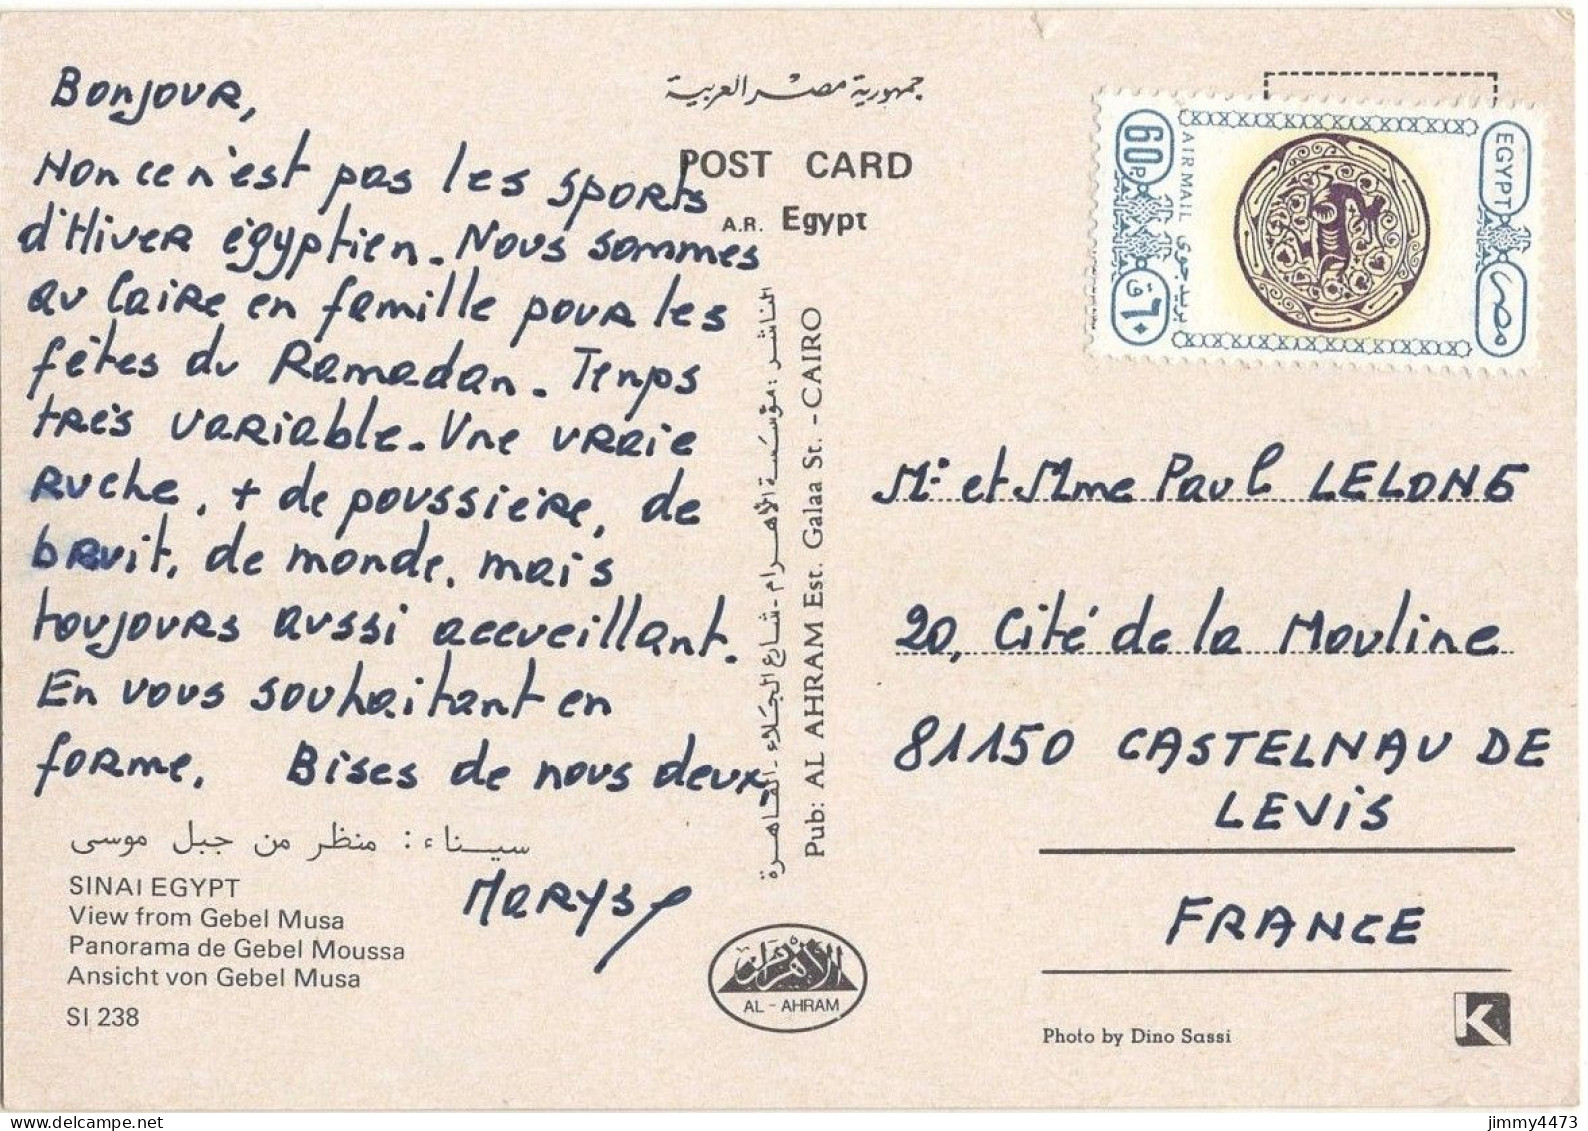 Bonjour,
Non ce n'est pas les sports
d'Hiver égyptien. Nous sommes
au Caire en famille pour les
fêtes du Ramadan. Temps
très variable. Une vraie
ruche, + de poussière, de
bruit, de monde, mais
toujours aussi accueillant.
En vous souhaitant en
forme. Bises de nous deux,
Maryse
سيناء: منظر من جبل موسى
SINAI EGYPT
View from Gebel Musa
Panorama de Gebel Moussa
Ansicht von Gebel Musa
SI 238
جمهورية مصر العربية
POST CARD
A.R. Egypt
الناشر: مؤسسة الأهرام - شارع الجلاء - القاهرة
Pub: AL AHRAM Est. Galaa St. - CAIRO
الأهرام
AL - AHRAM
60 P.
AIRMAIL بريد جوى
٦٠ ق
EGYPT
مصر
Mr et Mme Paul LELONG
20, Cité de la Mouline
81150 CASTELNAU DE
LEVIS
FRANCE
Photo by Dino Sassi
K
jimmy4473